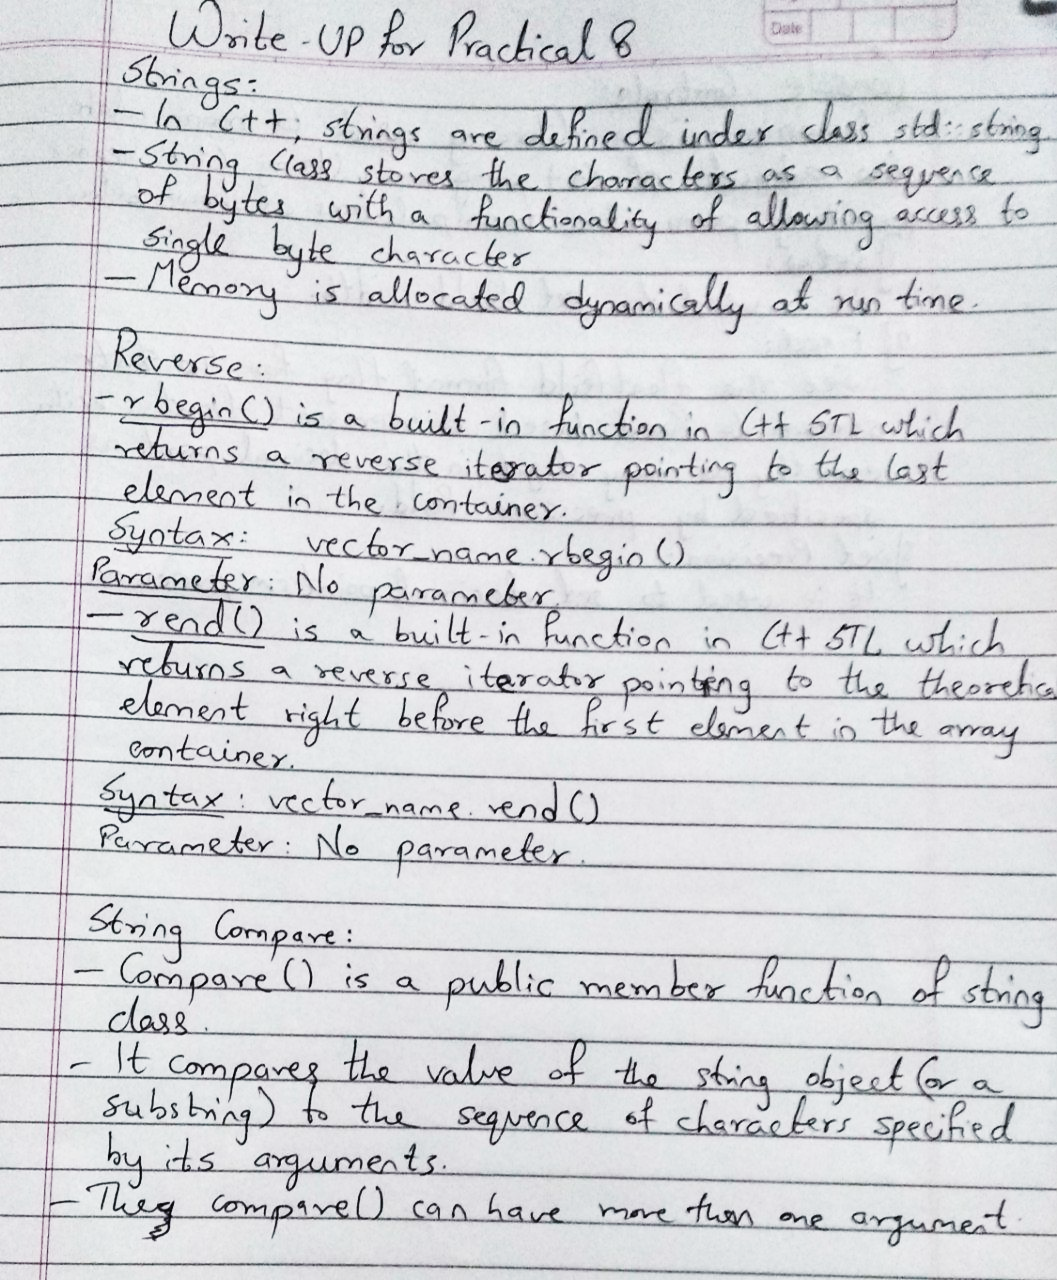 Date
Write-UP for Practical 8
Strings:
- In C++, strings are defined under class std::string
- String class stores the characters as a sequence
of bytes with a functionality of allowing access to
single byte character
- Memory is allocated dynamically at run time.
Reverse:
- rbegin() is a built-in function in C++ STL which
returns a reverse iterator pointing to the last
element in the container.
Syntax: vector_name.rbegin()
Parameter: No parameter.
- rend() is a built-in function in C++ STL which
returns a reverse iterator pointing to the theoretica
element right before the first element in the array
container.
Syntax: vector_name.rend()
Parameter: No parameter.
String Compare:
- Compare() is a public member function of string
class.
- It compares the value of the string object (or a
substring) to the sequence of characters specified
by its arguments.
- They compare() can have more than one argument.